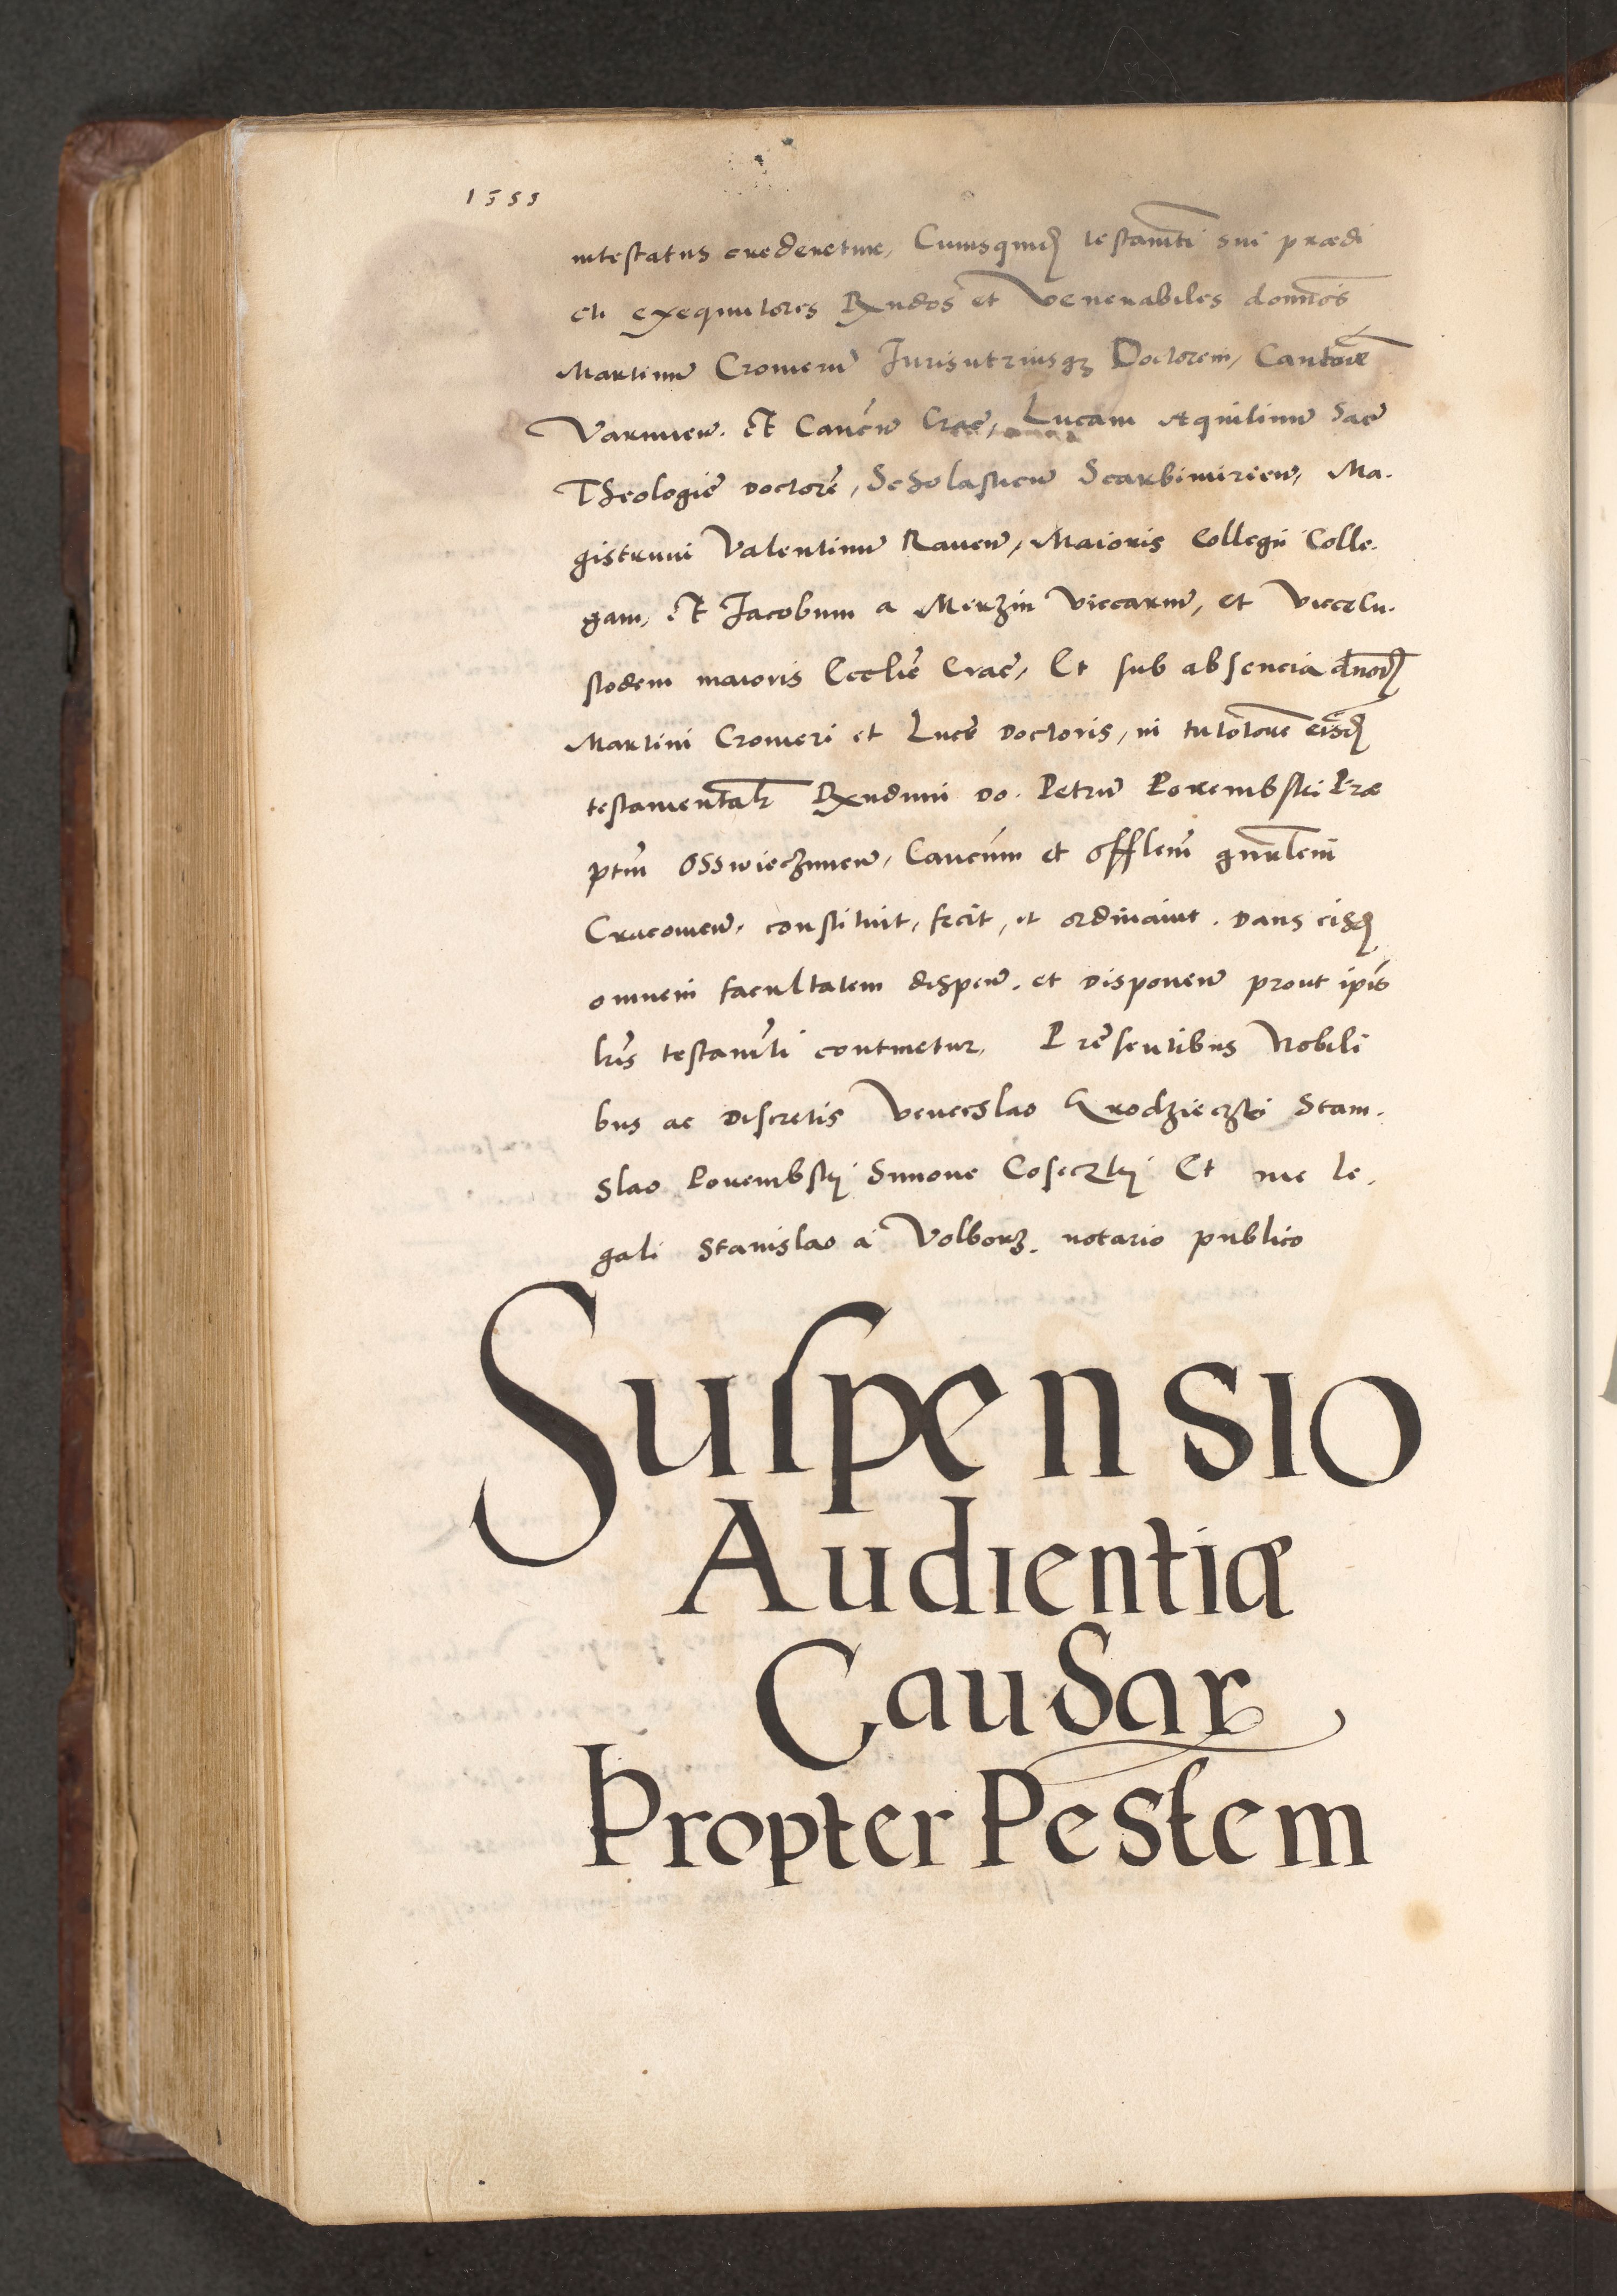 1555
intestatus crederetur, Cuiusquid[em] testam̃ti sui prædi
cti exequutores Rx̃ndos et Venerabiles domiños
Martinũ Cromerũ Iurisutriusqȝ Doctorem, Cantorẽ
Varmieñ. Et Cañcũ Craẽ, Lucam Aquilinũ Sacẽ
Theologiẽ Doctorẽ, Scholasticũ Scarbimirieñ, Ma-
gistrum Valentinũ Raueñ, Maioris Collegii Colle-
gam, Et Jacobum a Merzin Viccariũ, et Viceku-
stodem maioris Ecclie Craẽ, Et sub absencia dñor[um]
Martini Cromeri et Lucẽ Doctoris, in tutotorẽ eisd[em]
testamental[em] Rx̃ndum Do. Petrũ Porembski Præ
ptm̃ Osswieczimeñ, Cancũm et offlem̃ gñrlem
Cracouieñ, constituit, fecit, et ordinauit. Dans eisd[em]
omnem facultatem dispeñ. et disponeñ prout ip̃is
lr̃is testam̃ti continetur, Prẽsentibus Nobili
bus ac Discretis Venceslao Grodzieczki Stani-
slao Porembskij Simone Cosieczkij Et me le-
gali Stanislao a Volborz. notario publico
Suspensio
Audientiæ
Causar
Propter Pestem